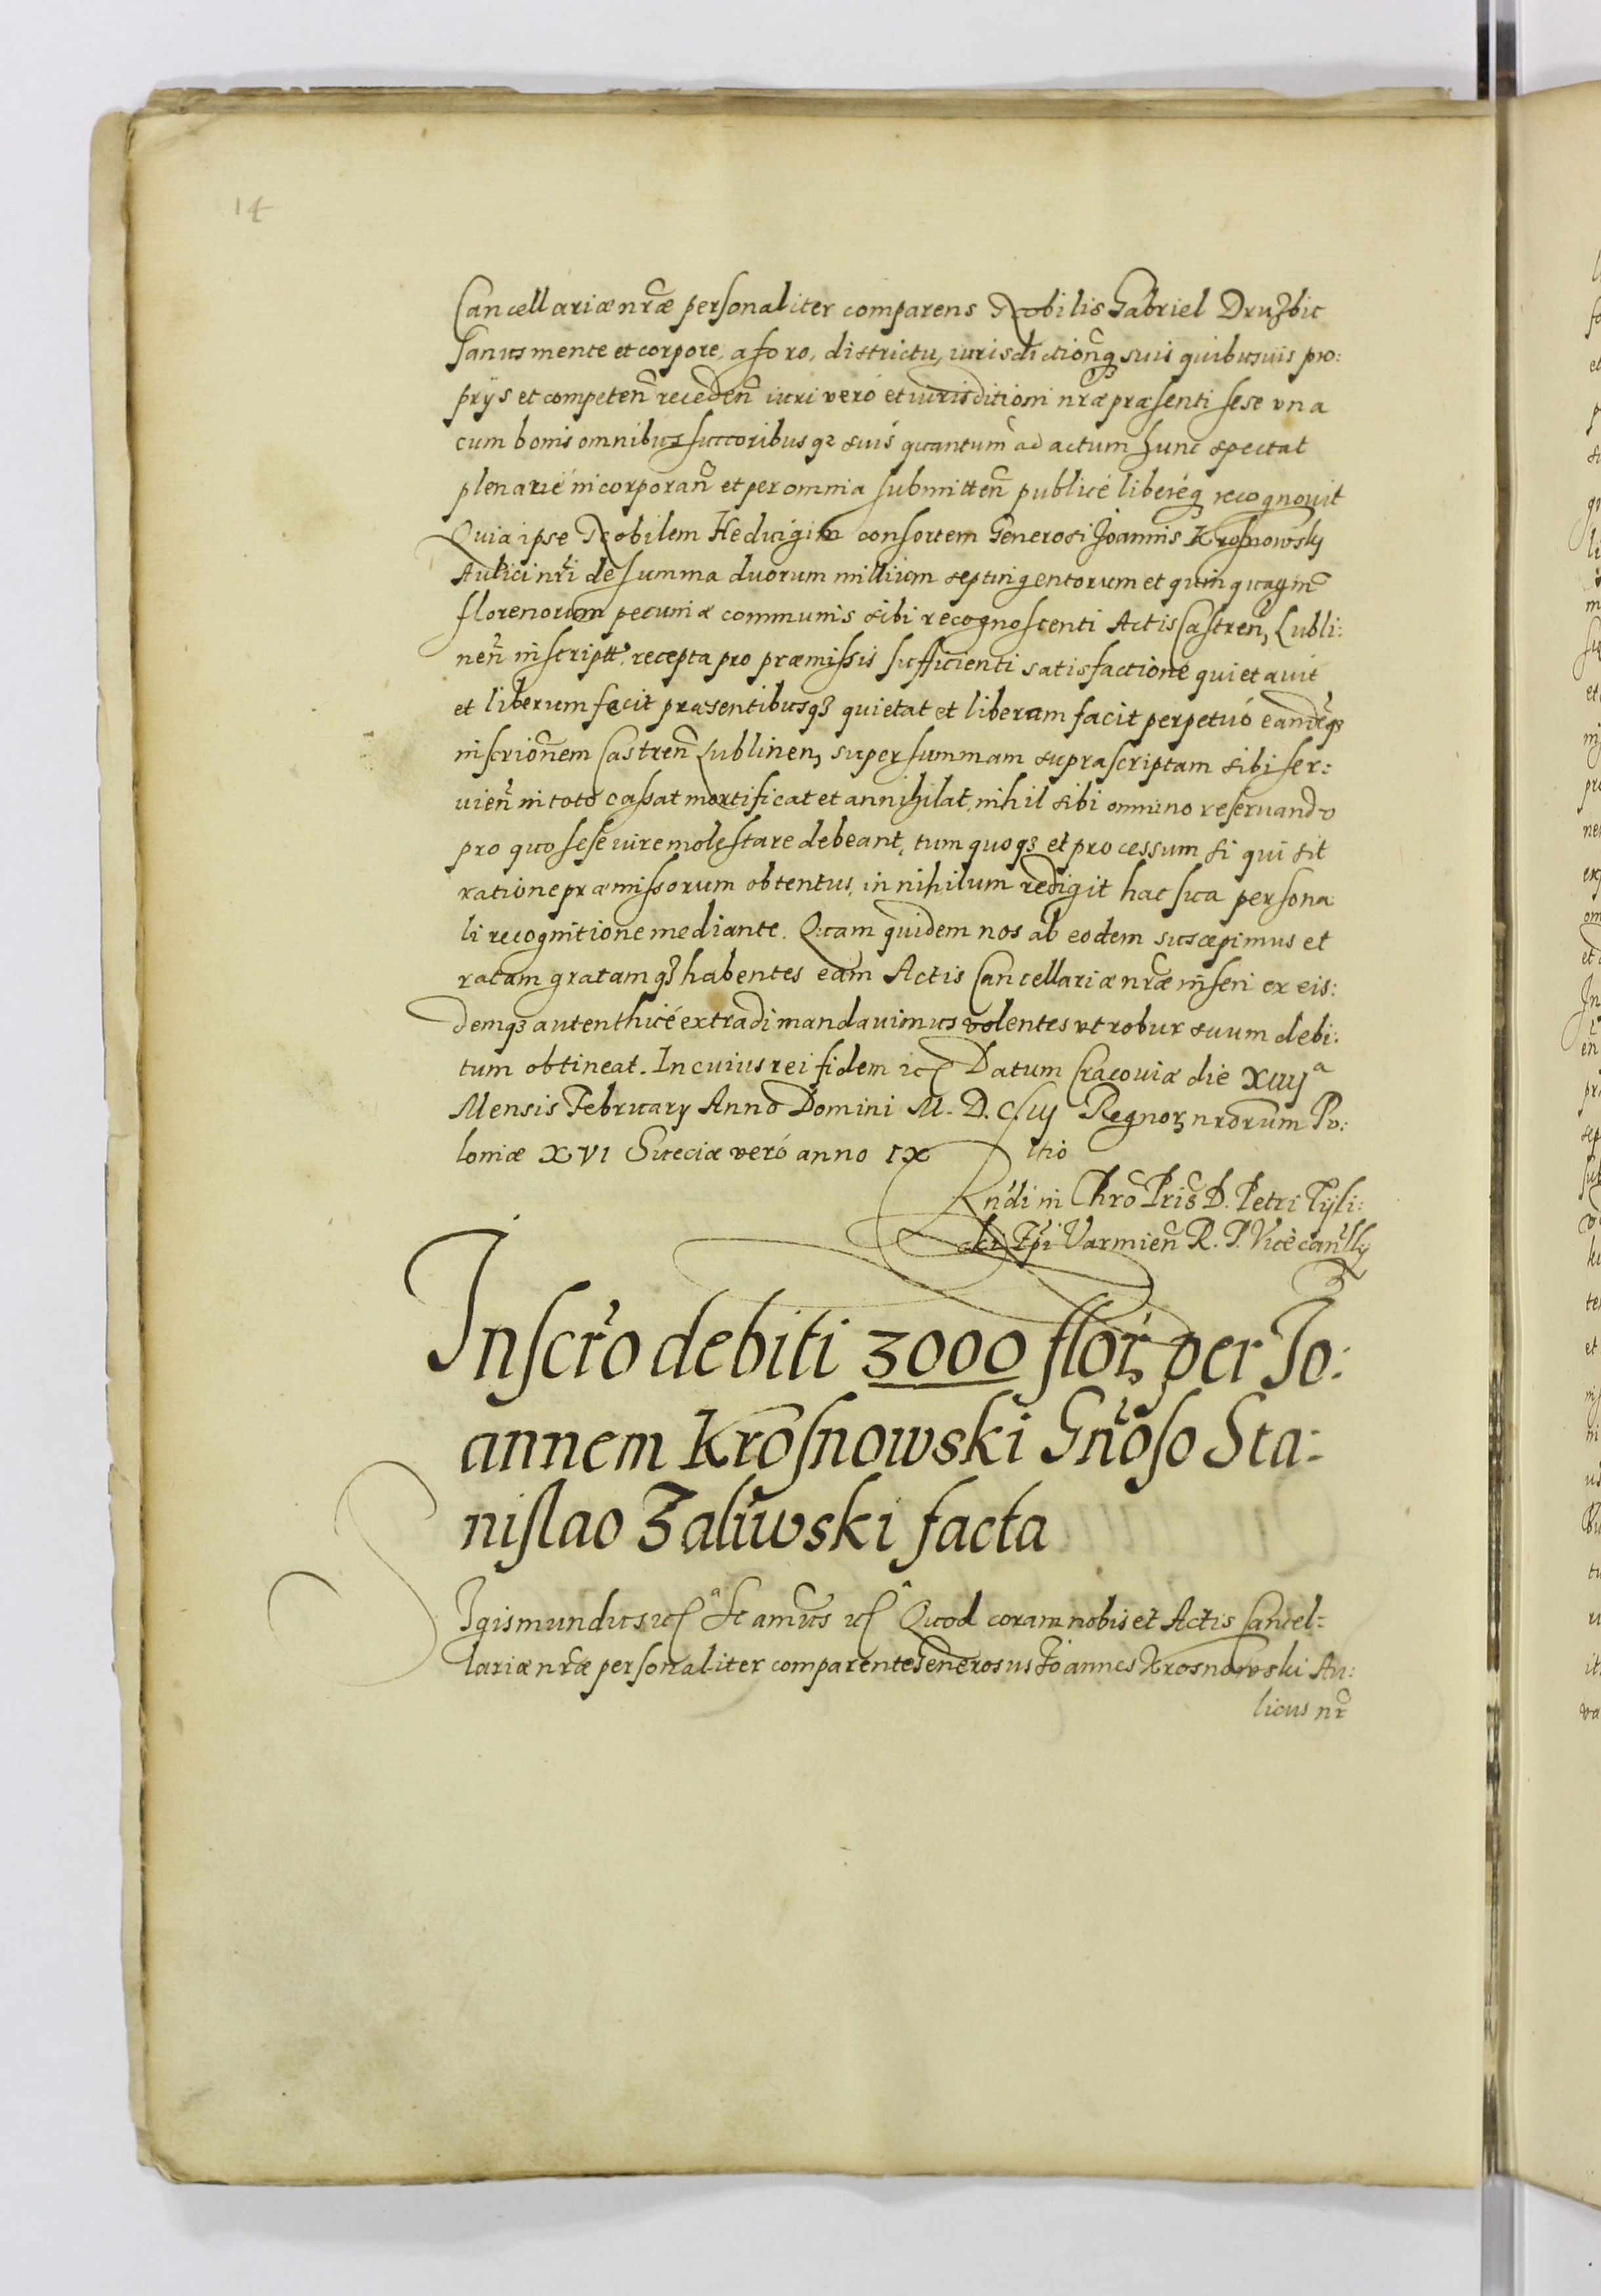 14
Cancellariæ nr̃æ personaliter comparens Nobilis Gabriel Druzbic
sanus mente et corpore, a foro, districtu, iurisdictionq̃ suis quibusuis pro:
prijs et competeñ recedeñ iuri veró et iurisditioni nr̃æ præsenti sese vna
cum bonis omnibus succoribusqꝫ suis quantum ad actum hunc spectat
plenarié incorporañ et per omnia submitteñ publicé liberéqꝫ recognouit
Quia ipse Nobilem Heduigim consortem Generosi Joannis Krosnowsky
Aulici nr̃i de summa duorum millium septingentorum et quinquagin̄
florenorum pecuniæ communis sibi recognoscenti Actis Castreñ, Lubli:
neñ inscriptt. recepta pro præmissis sufficienti satisfactione quietauit
et liberum fecit præsentibusqꝫ quietat et liberam facit perpetuó eandẽqꝫ
inscrionem Castreñ Lublinen, super summam suprascriptam sibi ser:
uieñ in toto cassat mortificat et annihilat, nihil sibi omnino reseruando
pro quo sese iure molestare debeant, tum quoqꝫ et processum si qui sit
ratione præmissorum obtentus, in nihilum redigit hac sua persona
li recognitione mediante. Quam quidem nos ab eodem suscepimus et
ratam gratamqꝫ habentes eam Actis Cancellariæ nr̃æ inseri ex eis:
demqꝫ autenthicé extradi mandauimus volentes vt robur suum debi:
tum obtineat. In cuius rei fidem ꝛc Datum Cracouiæ die XIIIj a
Mensis February Anno Domini M. D. CIIIj Regnorꝫ nrorum Po:
loniæ XVI Sueciæ veró anno IX ltio
Rndi in Chro Pris D. Petri Tÿli:
cki Epi Varmieñ R. P. Vicecanlly
Inscr̃o debiti 3000 flor̃ꝫ per Jo:
annem Krosnowski Gñoso Sta:
nislao Zaliwski facta
Sigismundus ꝛc a Sc amus ꝛc Quod coram nobis et Actis Cancel:
lariæ nr̃æ personaliter comparente Generosus Joannes Krosnowski Au:
licus nr̃